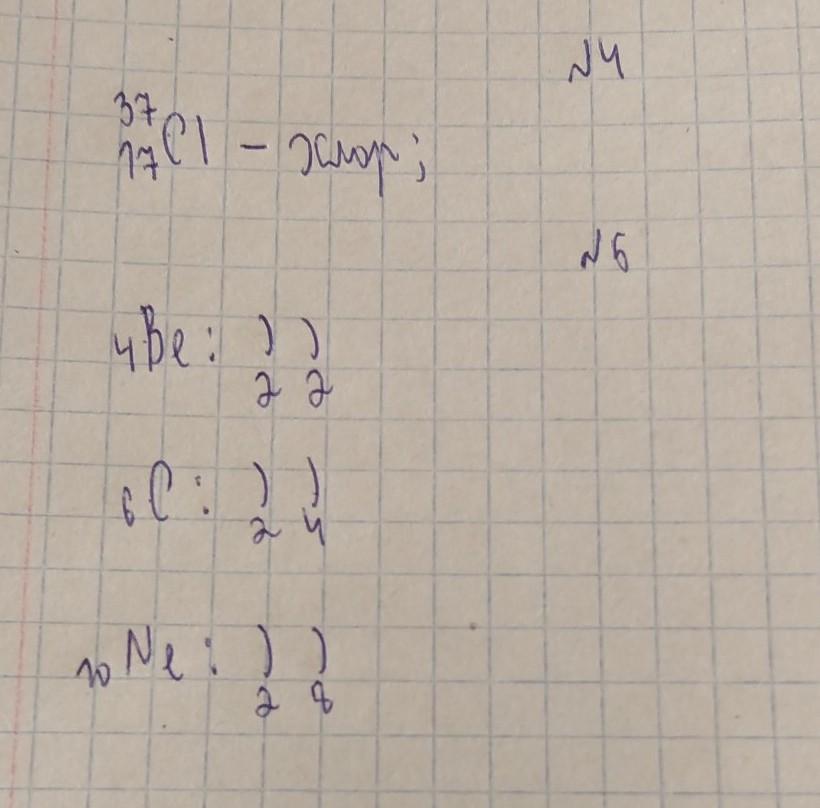 №4
37
17Cl - хлор;
№5
4Be: ) )
2 2
6C: ) )
2 4
10Ne: ) )
2 8